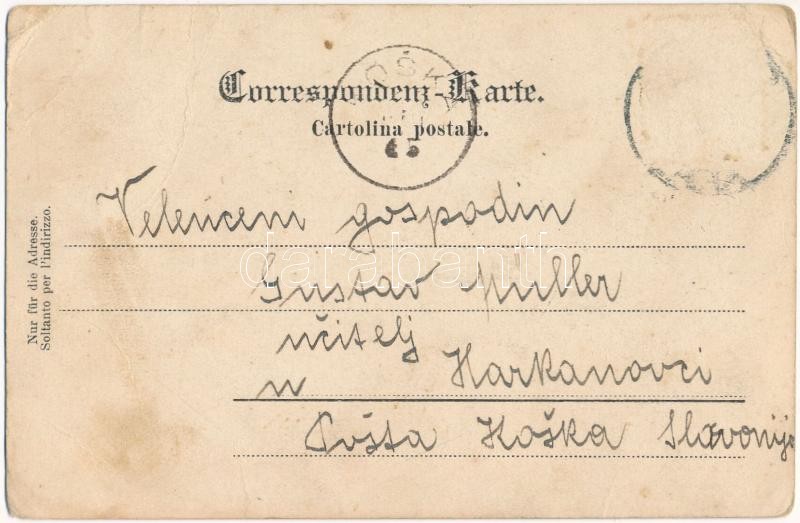 Correspondenz-Karte.
Cartolina postale.
KOŠKA
Nur für die Adresse.
Soltanto per l'indirizzo.
gospodin
Gustav Müller
učitelj
u Harkanovci
Pošta Koška Slavonija
darabanth